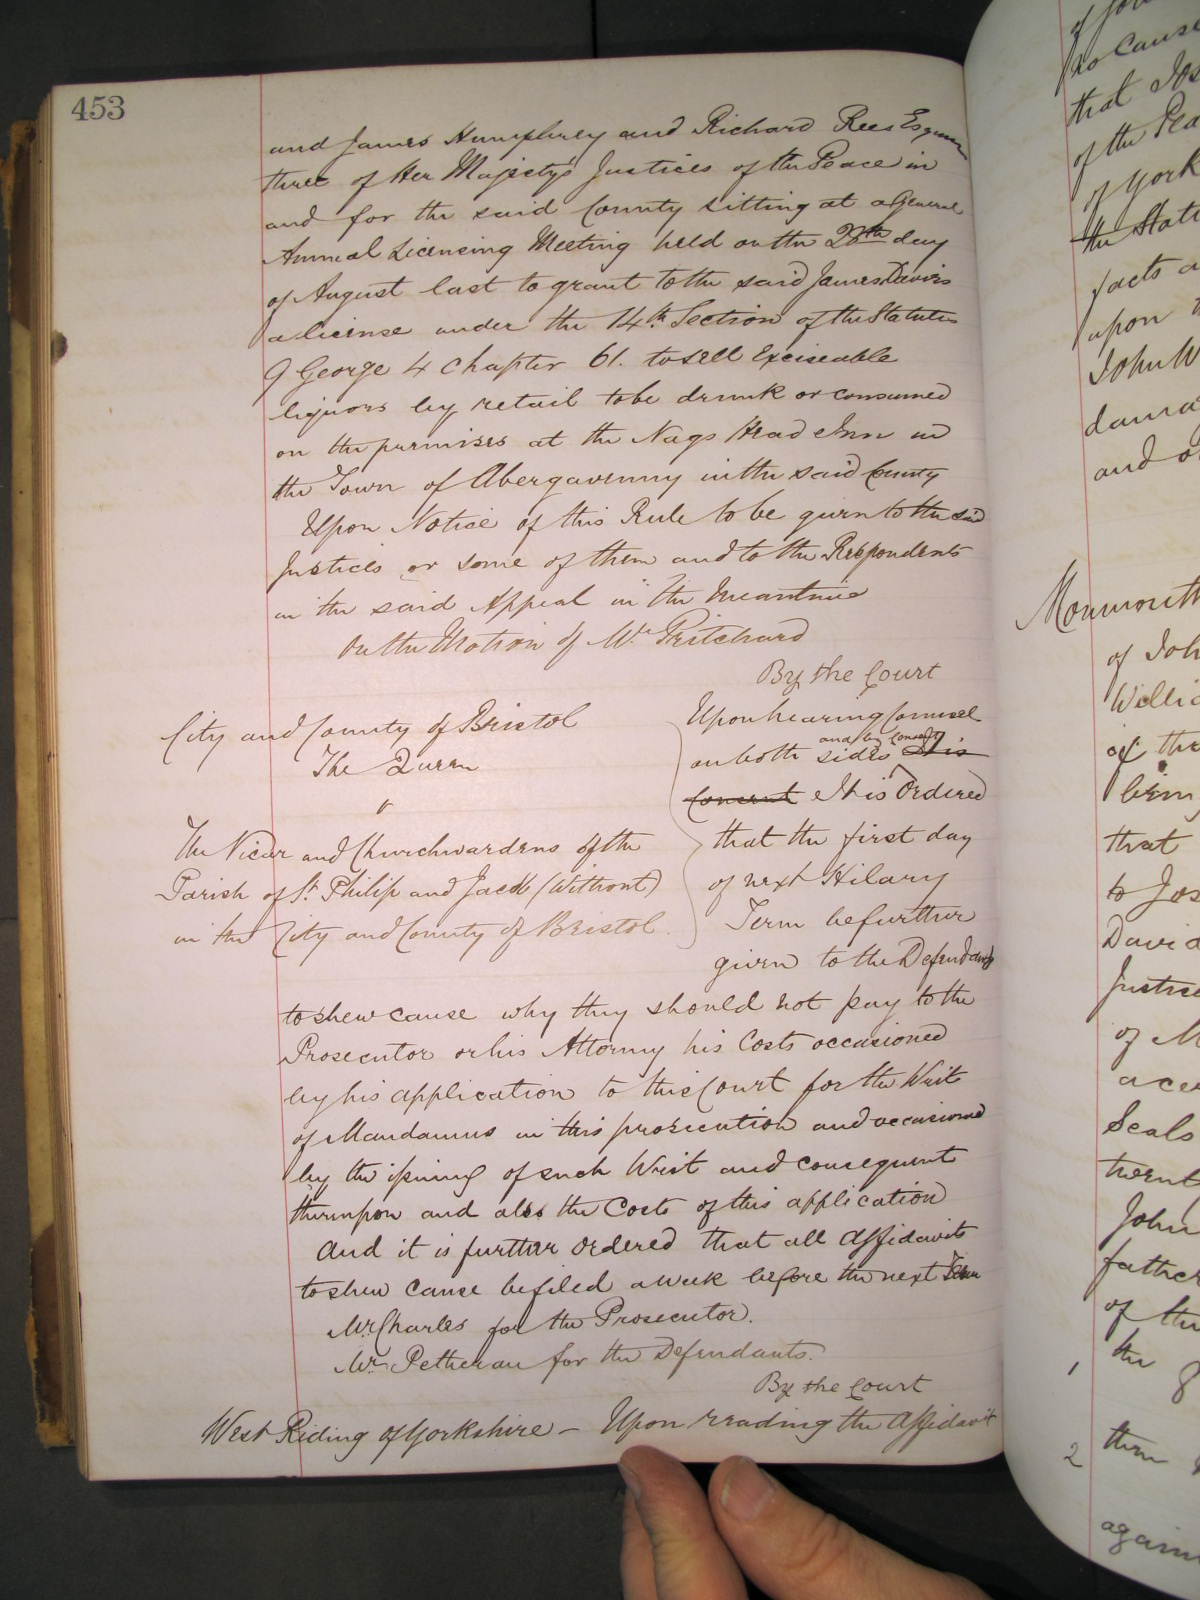 453
and James Humphrey and Richard Rees
three of Her Majesty's Justices of the Peace in
and for the said County sitting at a General
Annual Licensing Meeting held on the 28th day
of August last to grant to the said James Davies
a license under the 14th Section of the Statute
9 George 4 Chapter 61. to sell Exciseable
liquors by retail to be drunk or consumed
on the premises at the Nags Head Inn in
the Town of Abergavenny in the said County
Upon Notice of this Rule to be given to the said
Justices or some of them and to the Respondents
in the said Appeal in the meantime
On the Motion of Mr Pritchard
By the Court
City and County of Bristol
The Queen
v
The Vicar and Churchwardens of the
Parish of St. Philip and Jacob (Without)
in the City and County of Bristol.
Upon hearing Counsel
and by Consent
on both sides It is
Consent It is Ordered
that the first day
of next Hilary
Term be further
given to the Defendants
to shew cause why they should not pay to the
Prosecutor or his Attorney his Costs occasioned
by his application to this Court for the Writ
of Mandamus in this prosecution and occasioned
by the issuing of such Writ and consequent
thereupon and also the Costs of this application
And it is further Ordered that all Affidavits
to shew cause be filed a week before the next Term
Mr. Charles for the Prosecutor.
Mr. Petheram for the Defendants.
By the Court
West Riding of Yorkshire – Upon reading the Affidavit
no cause
that Jos
of the Pea
of York
the Stat
facts a
upon
John W
dama
and o
Monmouth
of Joh
Willia
of the
him
that
to Jos
David
Justice
of M
Seals
John
father
of the
1 the 8
2 them
again